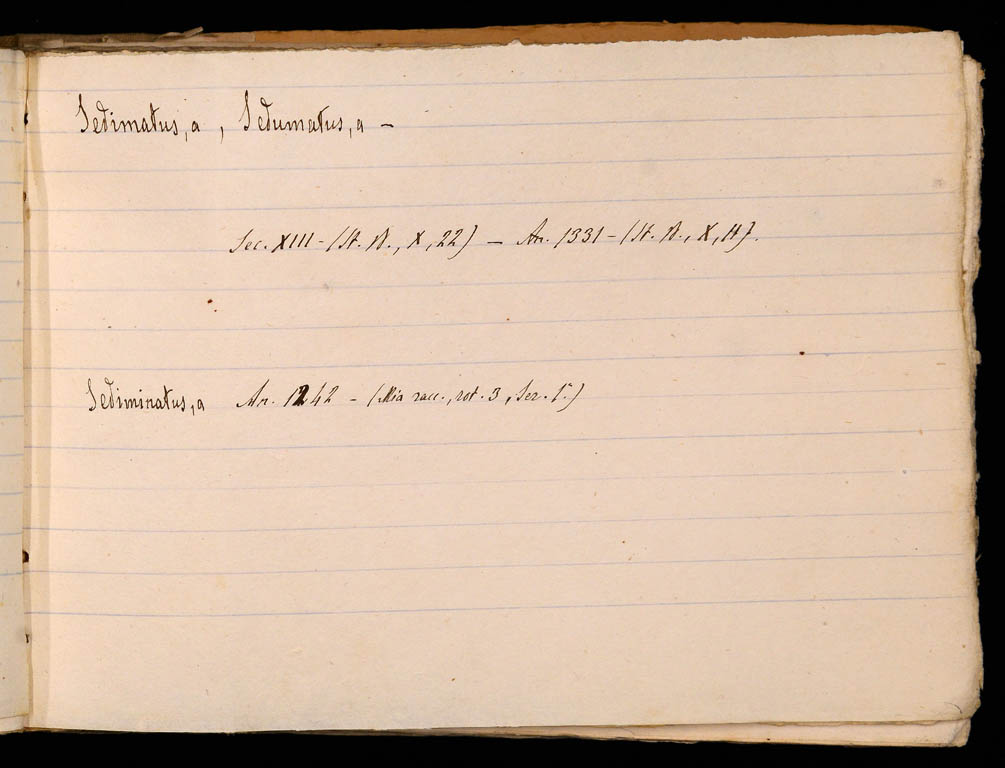 Sedimatus, a, Sedumatus, a —
Sec. XIII - (St. N., X, 22) — An. 1331 - (St. N., X, 14).
Sediminatus, a An. 1242 - (Mia racc., rot. 3, Ser. 1ª)